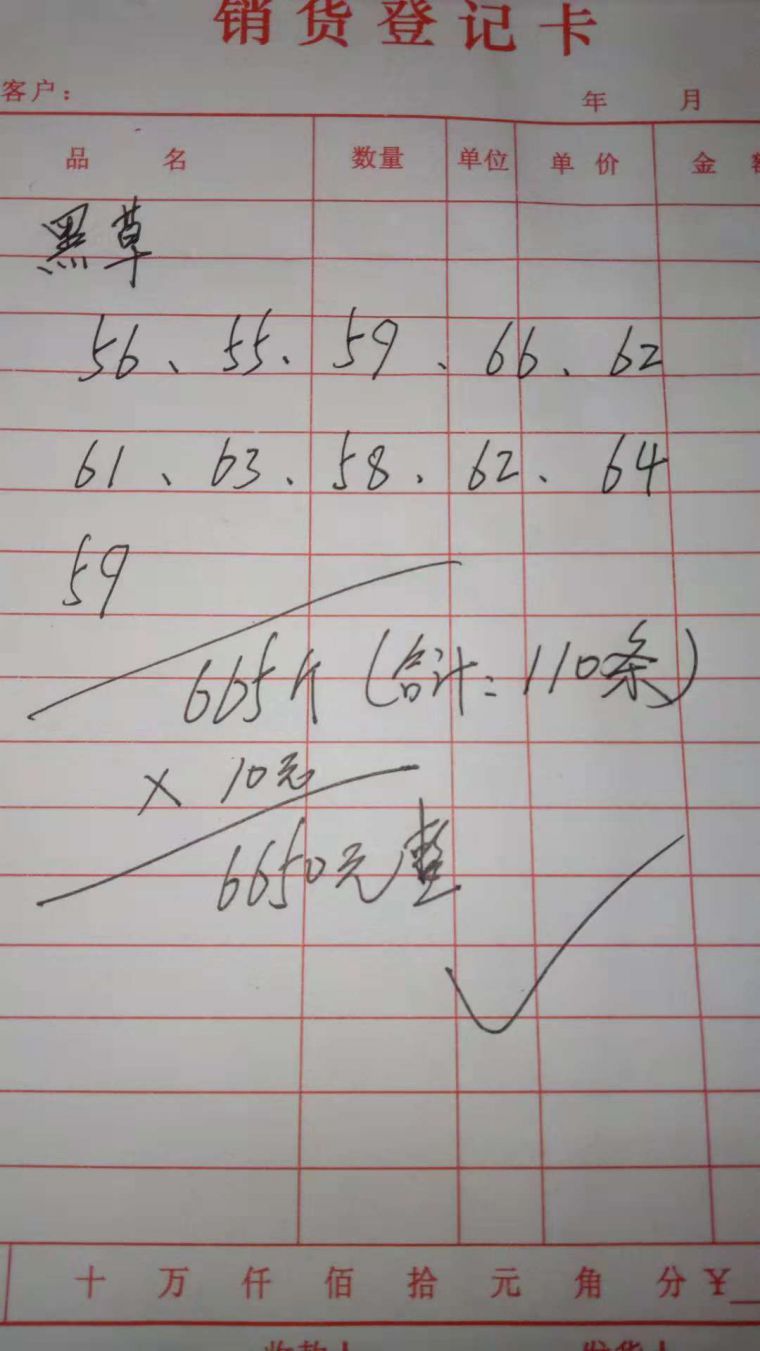 销货登记卡
客户： 年 月
品名 数量 单位 单价 金
黑草
56、55、59、66、62
61、63、58、62、64
59
665斤（合计：110条）
× 10元
6650元整
十 万 仟 佰 拾 元 角 分 ¥